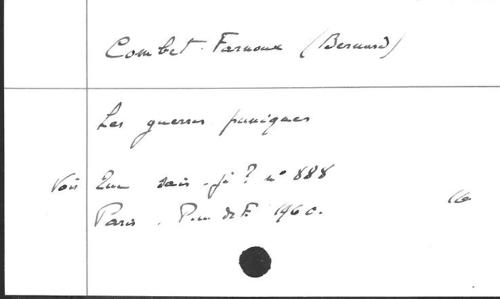 Combet-Farnoux (Bernard)
Les guerres puniques
Voir Que sais-je? n° 888
Paris. P.U. de F. 1960.
16